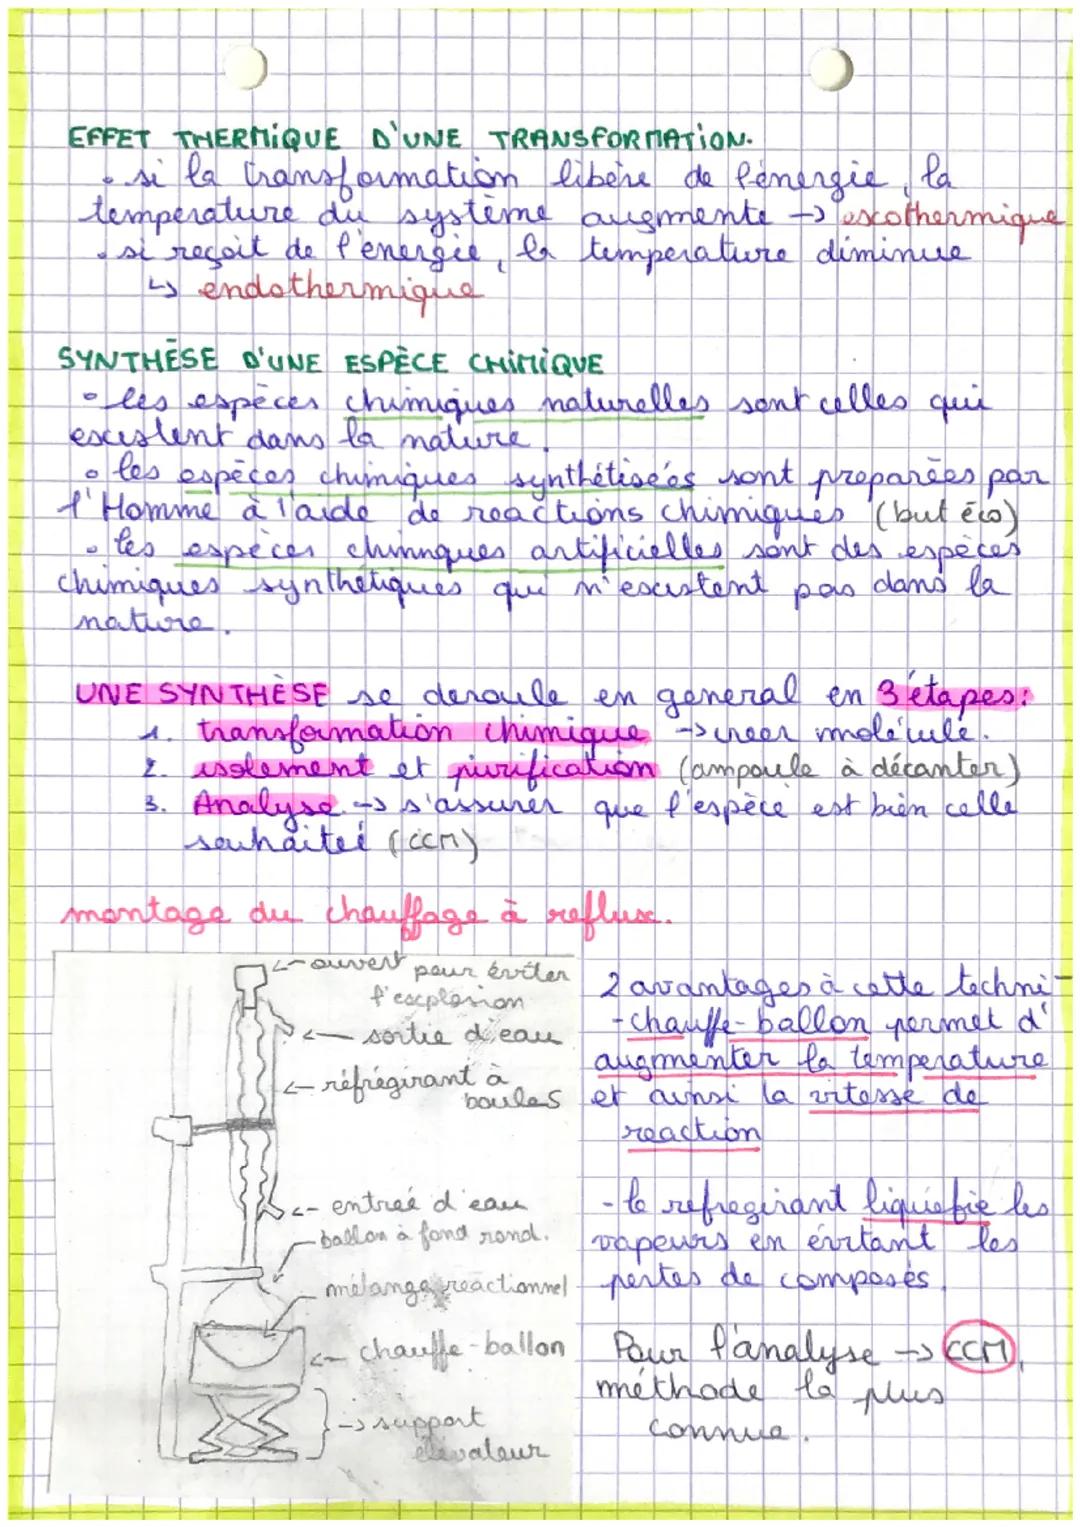 EFFET THERMIQUE D'UNE TRANSFORMATION.
• si la transformation libère de l'énergie, la
température du système augmente → exothermique
• si reçoit de l'énergie, la température diminue
↳ endothermique
SYNTHÈSE D'UNE ESPÈCE CHIMIQUE
• les espèces chimiques naturelles sont celles qui
existent dans la nature.
• les espèces chimiques synthétisées sont preparées par
l'Homme à l'aide de reactions chimiques (but éco)
• les espèces chimiques artificielles sont des espèces
chimiques synthétiques qui n'existent pas dans la
nature.
UNE SYNTHÈSE se deroule en general en 3 étapes:
1. transformation chimique → creer molécule.
2. isolement et purification (ampoule à décanter)
3. Analyse → s'assurer que l'espèce est bien celle
souhaiteé (CCM)
montage du chauffage à reflux.
← ouvert pour éviter
l'explosion
← sortie d'eau
← réfrégirant à
boules
← entreé d'eau
ballon à fond rond.
mélange reactionnel
← chauffe-ballon
→ support
élévateur
2 avantages à cette techni-
- chauffe-ballon permet d'
augmenter la temperature
et ainsi la vitesse de
reaction
- le refregirant liquéfie les
vapeurs en évitant les
pertes de composés.
Pour l'analyse → CCM,
méthode la plus
connue.